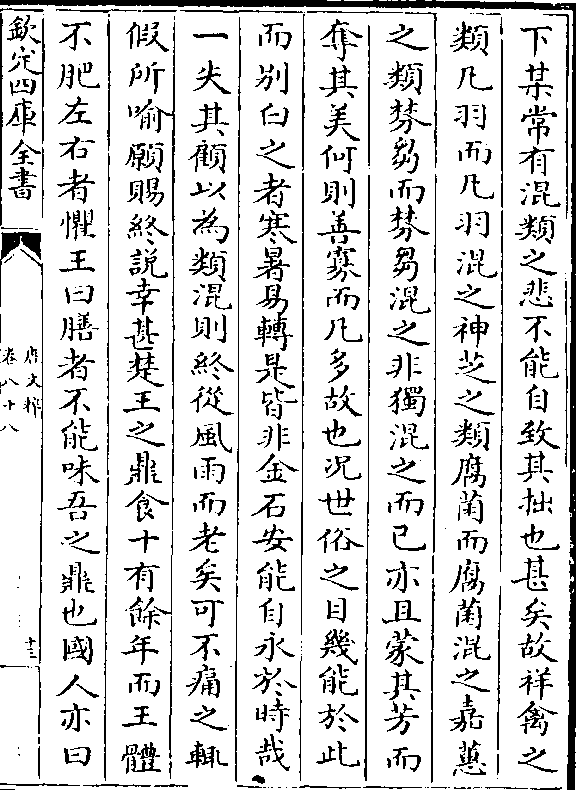 下某常有混類之悲不能自致其拙也甚矣故祥禽之
類凡羽而凡羽混之神芝之類腐菌而腐菌混之嘉蕙
之類棼芻而棼芻混之非獨混之而已亦且蒙其芳而
奪其美何則善寡而凡多故也况世俗之目幾能於此
而別白之者寒暑易轉是皆非金石安能自永於時哉
一失其顧以為類混則終從風雨而老矣可不痛之輒
假所喻願賜終說幸甚楚王之鼎食十有餘年而王體
不肥左右者懼王曰膳者不能味吾之鼎也國人亦曰
欽定四庫全書
唐文粹
卷八十八
十三